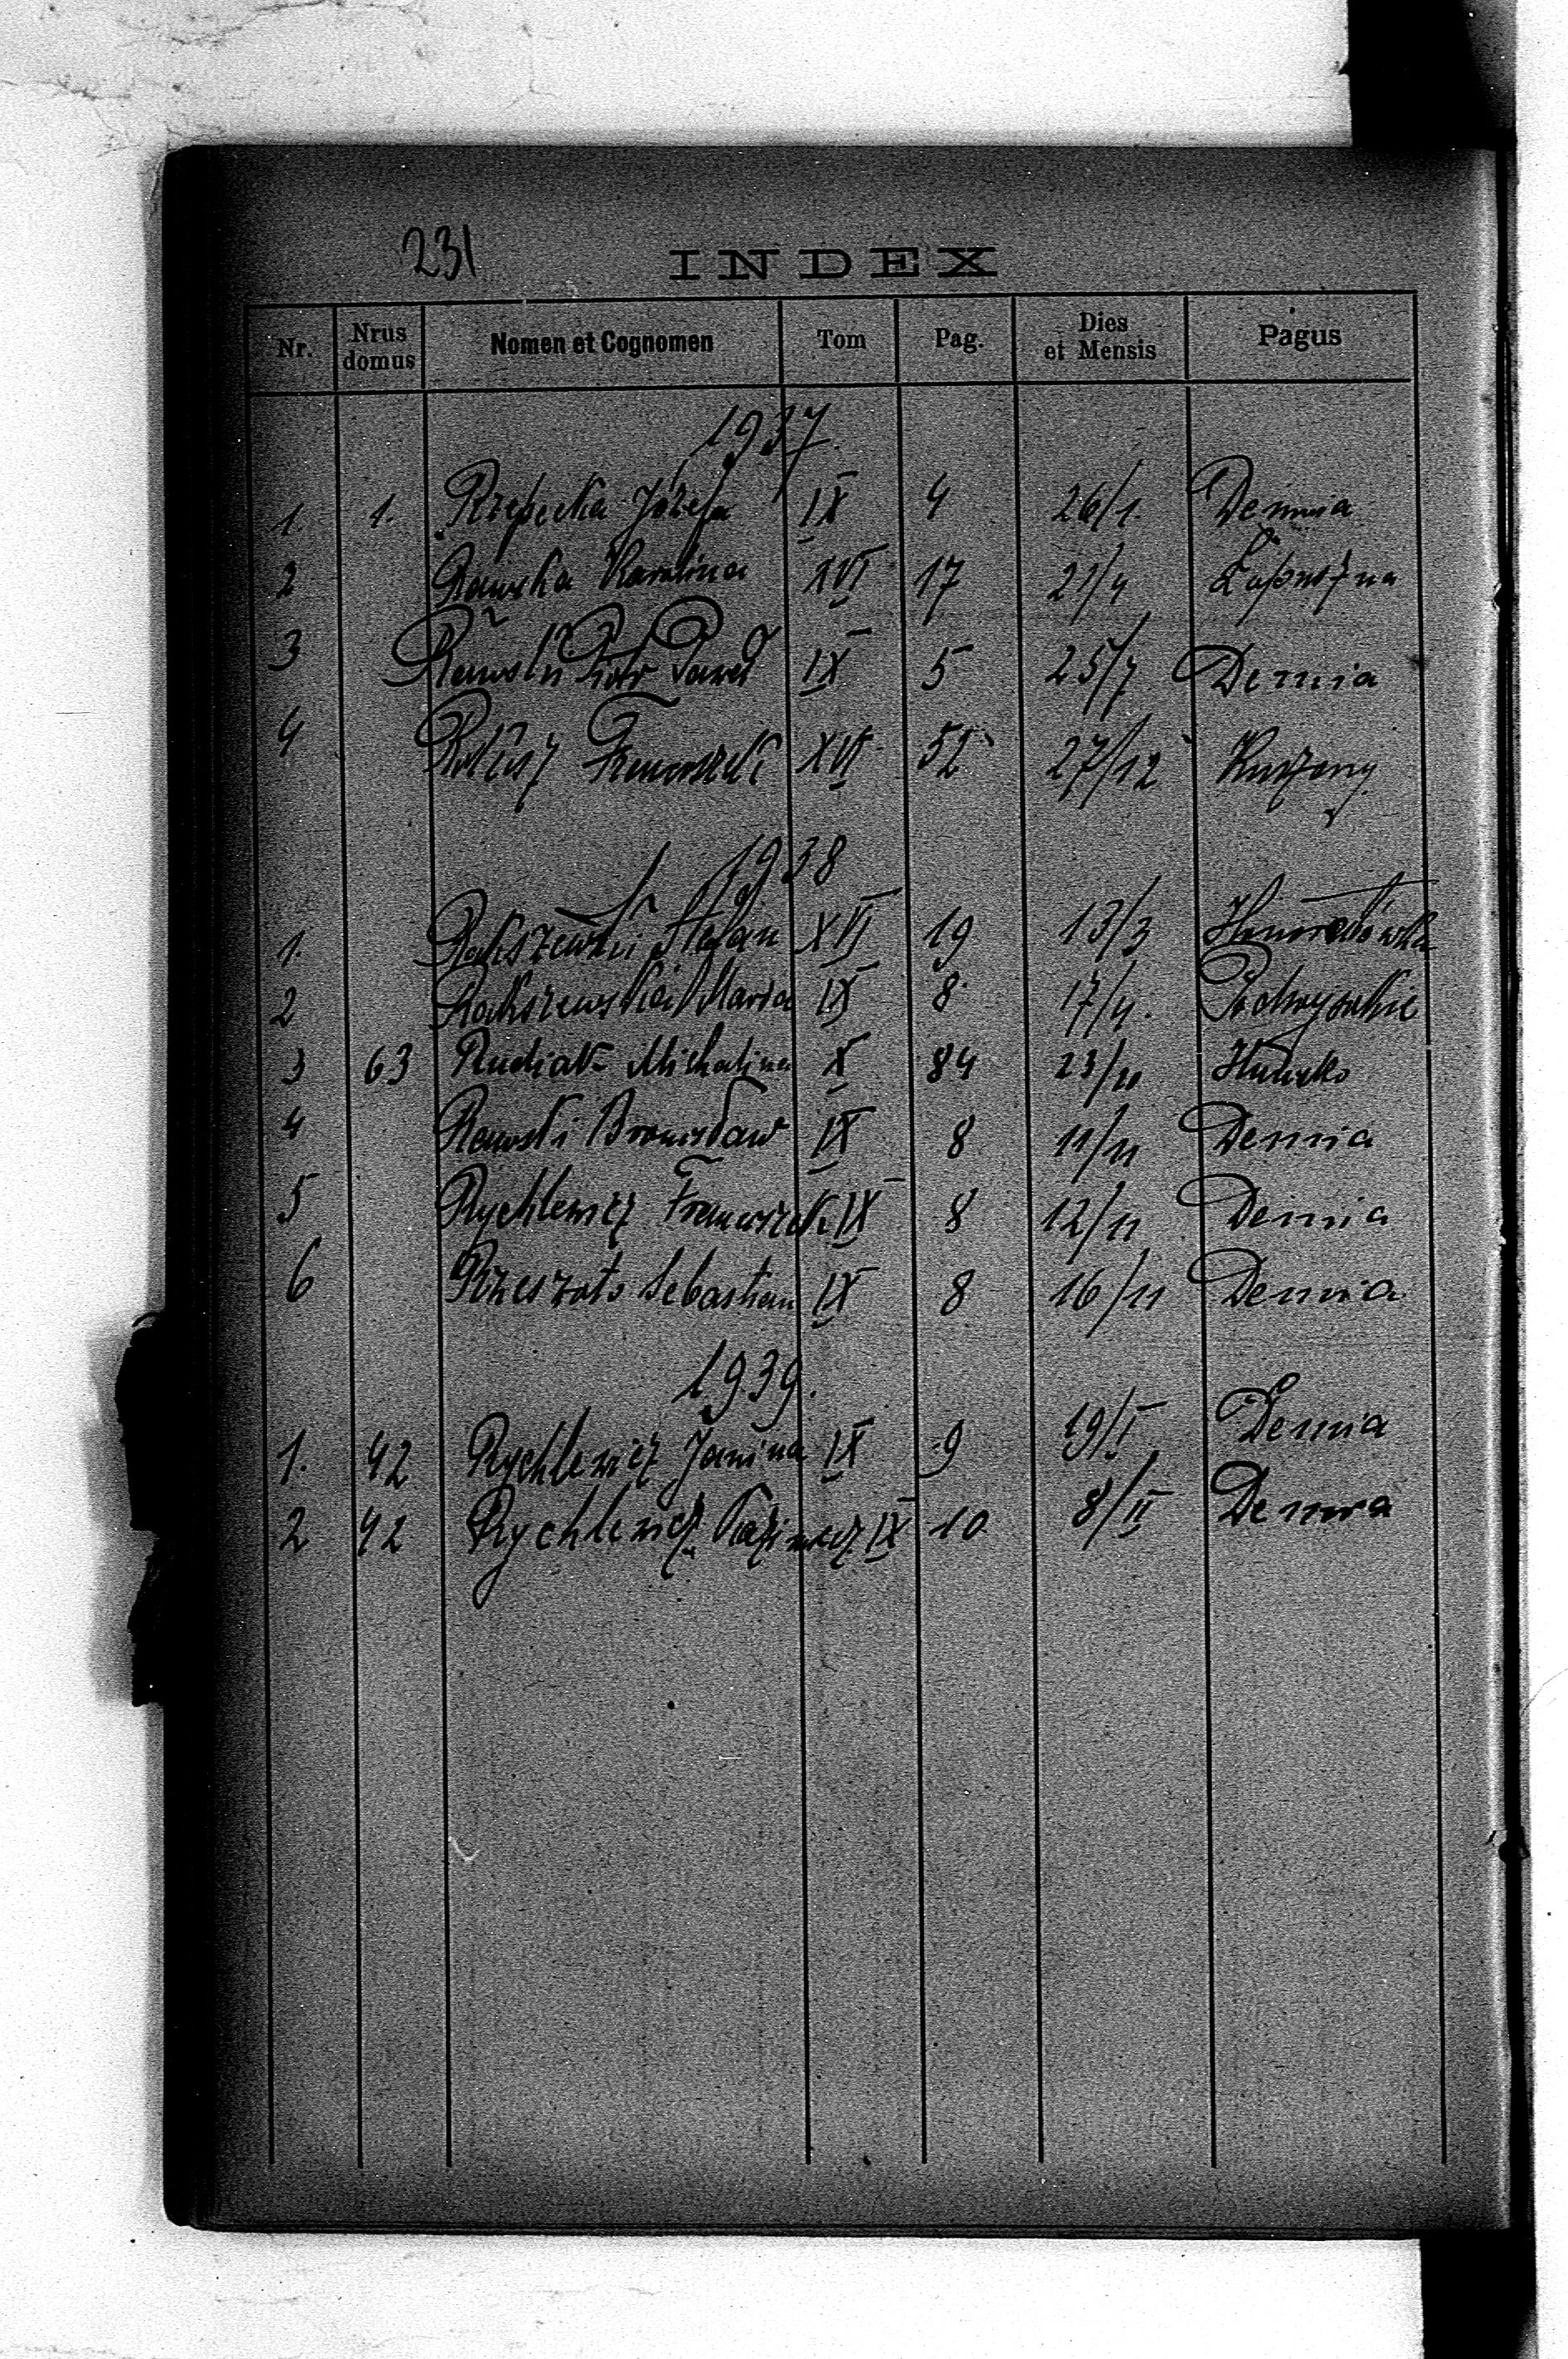 231
INDEX
Nr. Nrus domus Nomen et Cognomen Tom Pag. Dies et Mensis Pagus
1937.
1. 1. Rzepecka Józefa IX 4 26/1. Demnia
2 Rawska Karolina XVI 17 21/4 Łapszyna
3 Rawski Piotr Paweł IX 5 25/7 Demnia
4 Franciszek XVI 52 27/12
1938
1. Rakszewski Stefan XVI 19 13/3
2 Rakszewska Maria IX 8 17/4. Podwysokie
3 63 Rudiak Michalina X 84 Hucisko
4 Rawski Bronisław IX 8 11/11 Demnia
5 Rychlewicz Franciszek IX 8 12/11 Demnia
6 Rzeszoto Sebastian IX 8 16/11 Demnia
1939.
1. 42 Rychlewicz Janina IX 9 19/I Demnia
2 42 Rychlewicz Kazimierz IX 10 8/II Demnia